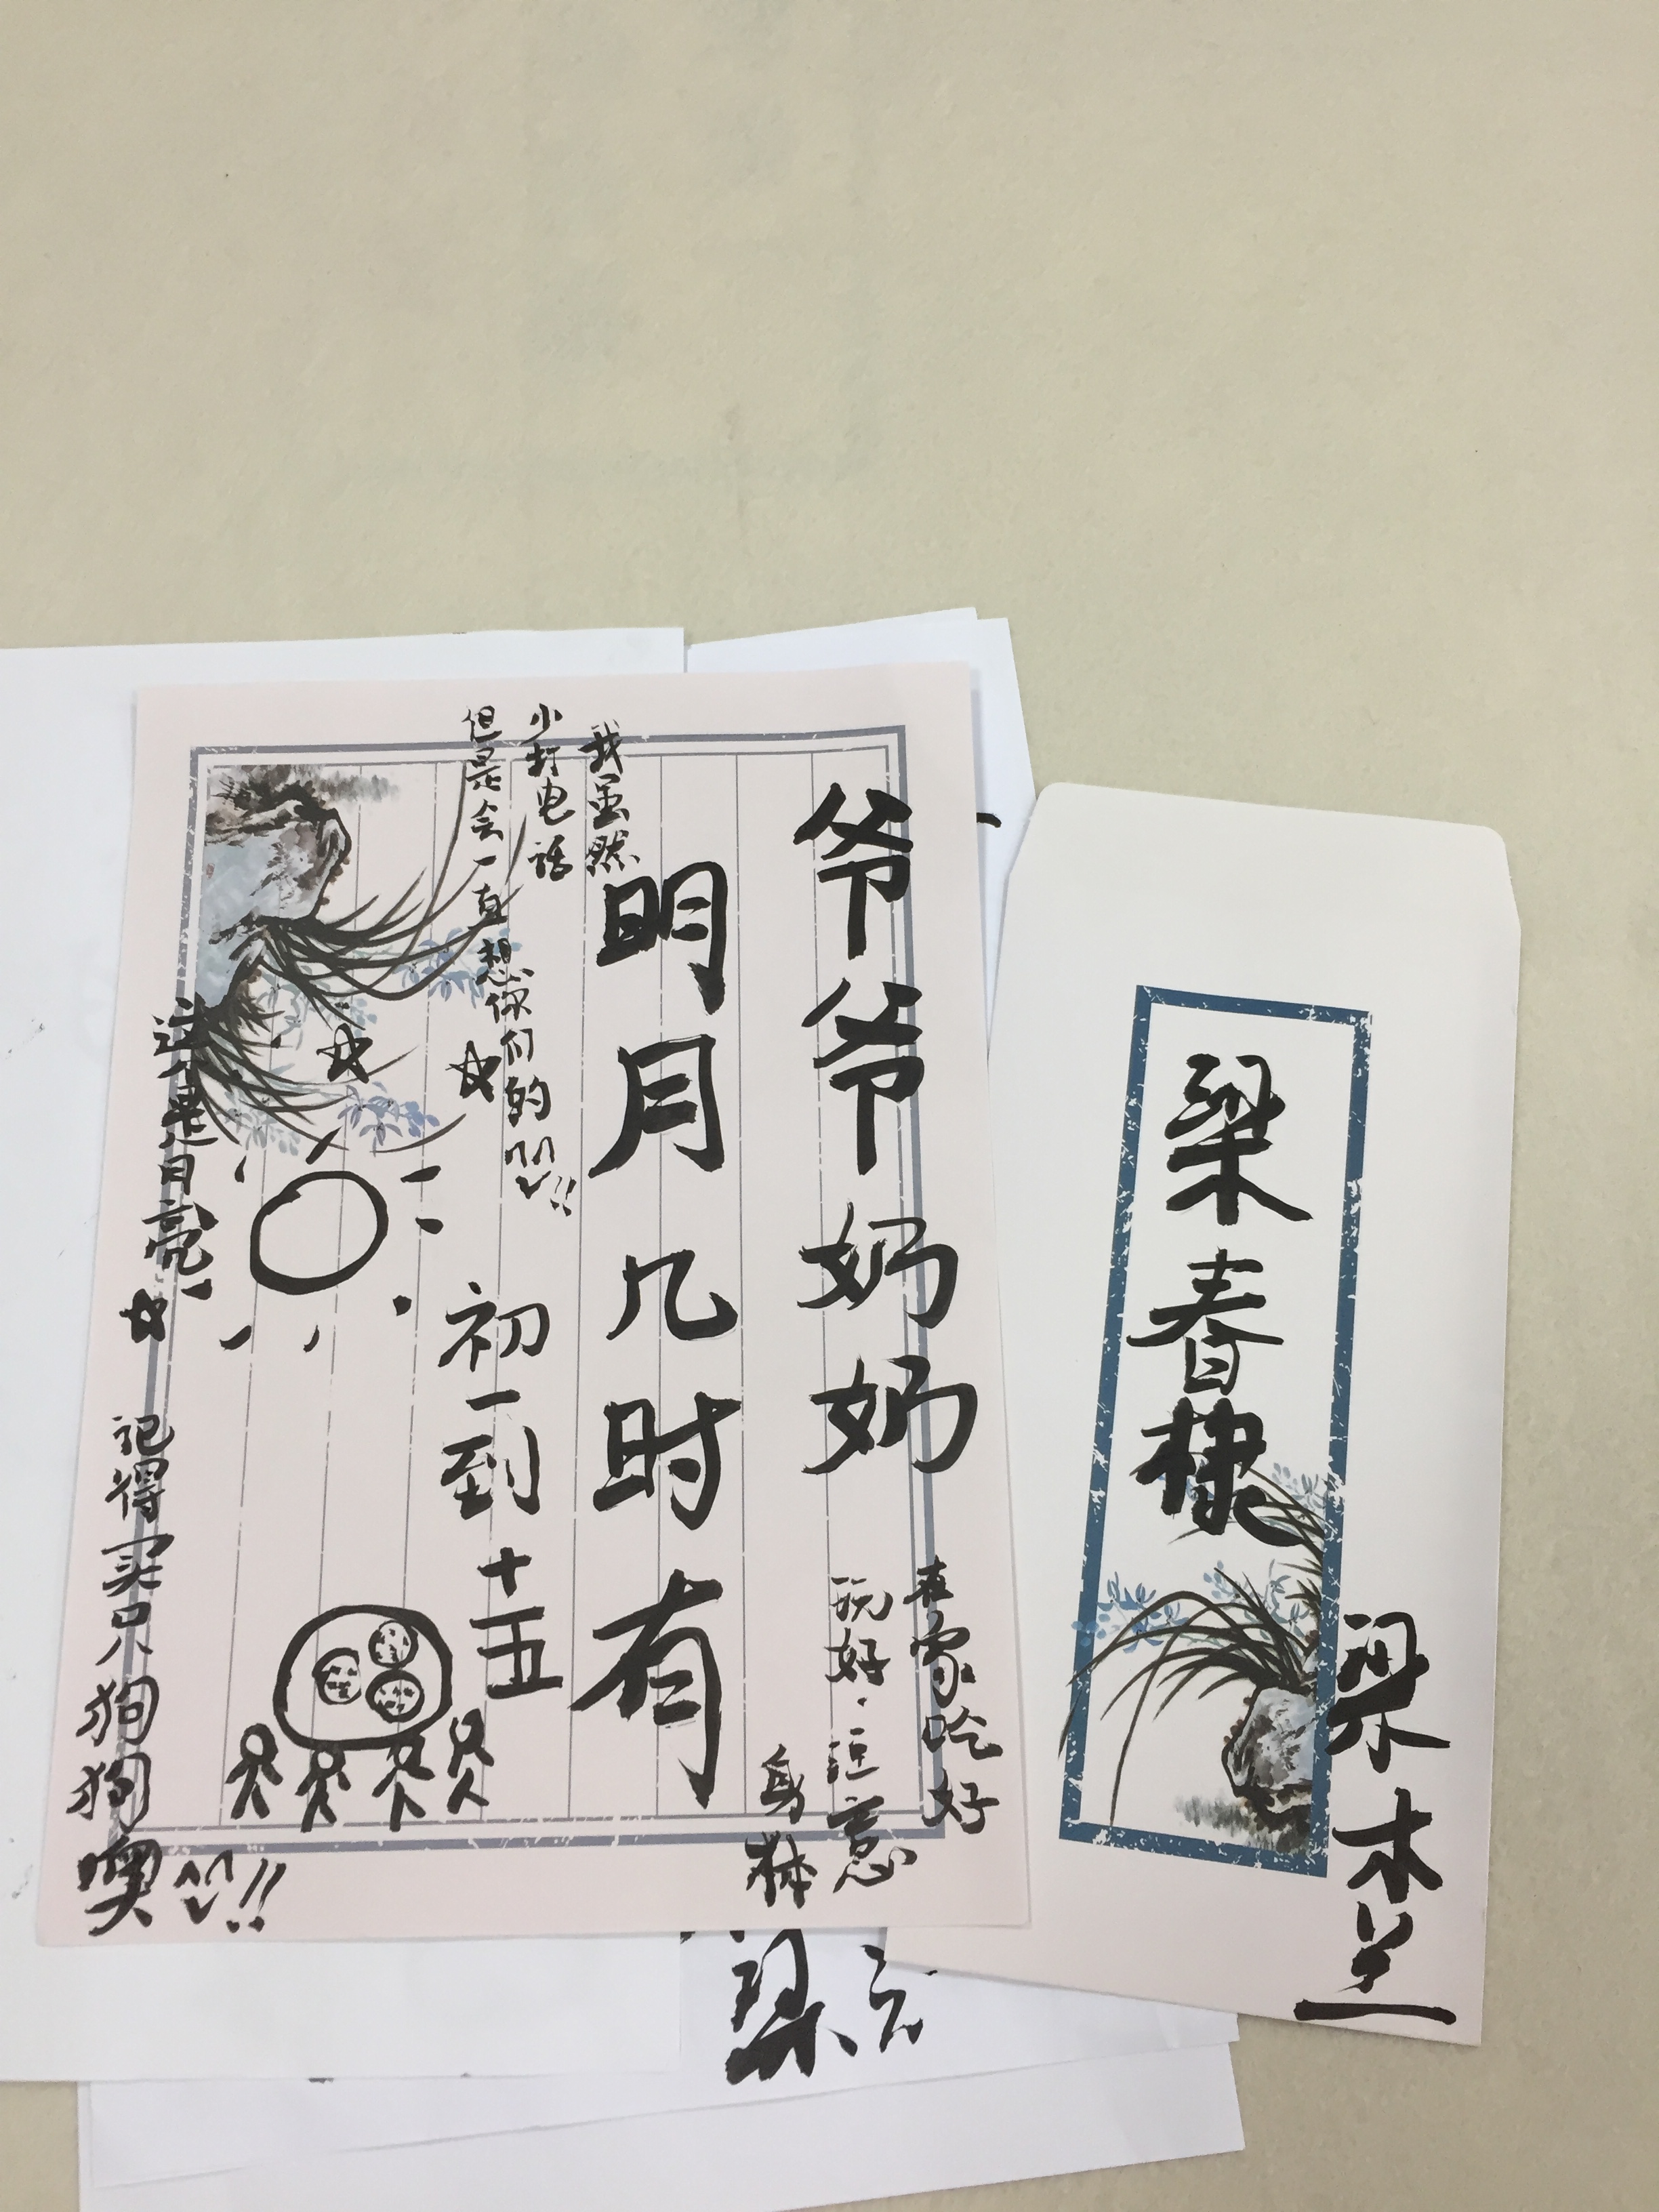 爷爷奶奶
在家吃好
玩好.注意
身体
明月几时有
初一到十五
我虽然
小打电话
但是会一直想你们的!!
这是月亮
记得买只狗狗噢!!
梁春棣
梁木兰
梁